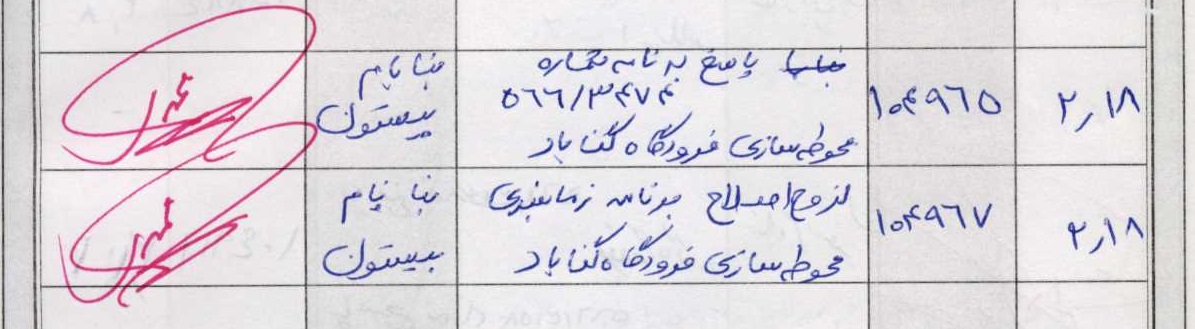 ۲,۱۸
۱۰۴۹۶۵
پاسخ به نامه شماره
۵۶۶/۳۴۷۴
محوطه سازی فرودگاه گناباد
بنا بام
بیستون
۲,۱۸
۱۰۴۹۶۷
لزوم اصلاح برنامه زمانبندی
محوطه سازی فرودگاه گناباد
بنا بام
بیستون